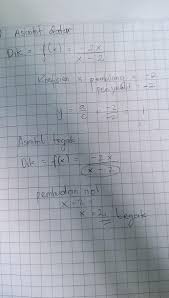 Asimtot datar
Dik = f(x) = -2x
x - 2
Koefisien x pembilang = -2
penyebut = -2
y = a/c = -2/-2 = 1
Asimtot tegak
Dik = f(x) = -2x
x - 2
pembuat nol
x - 2
x = 2 tegak